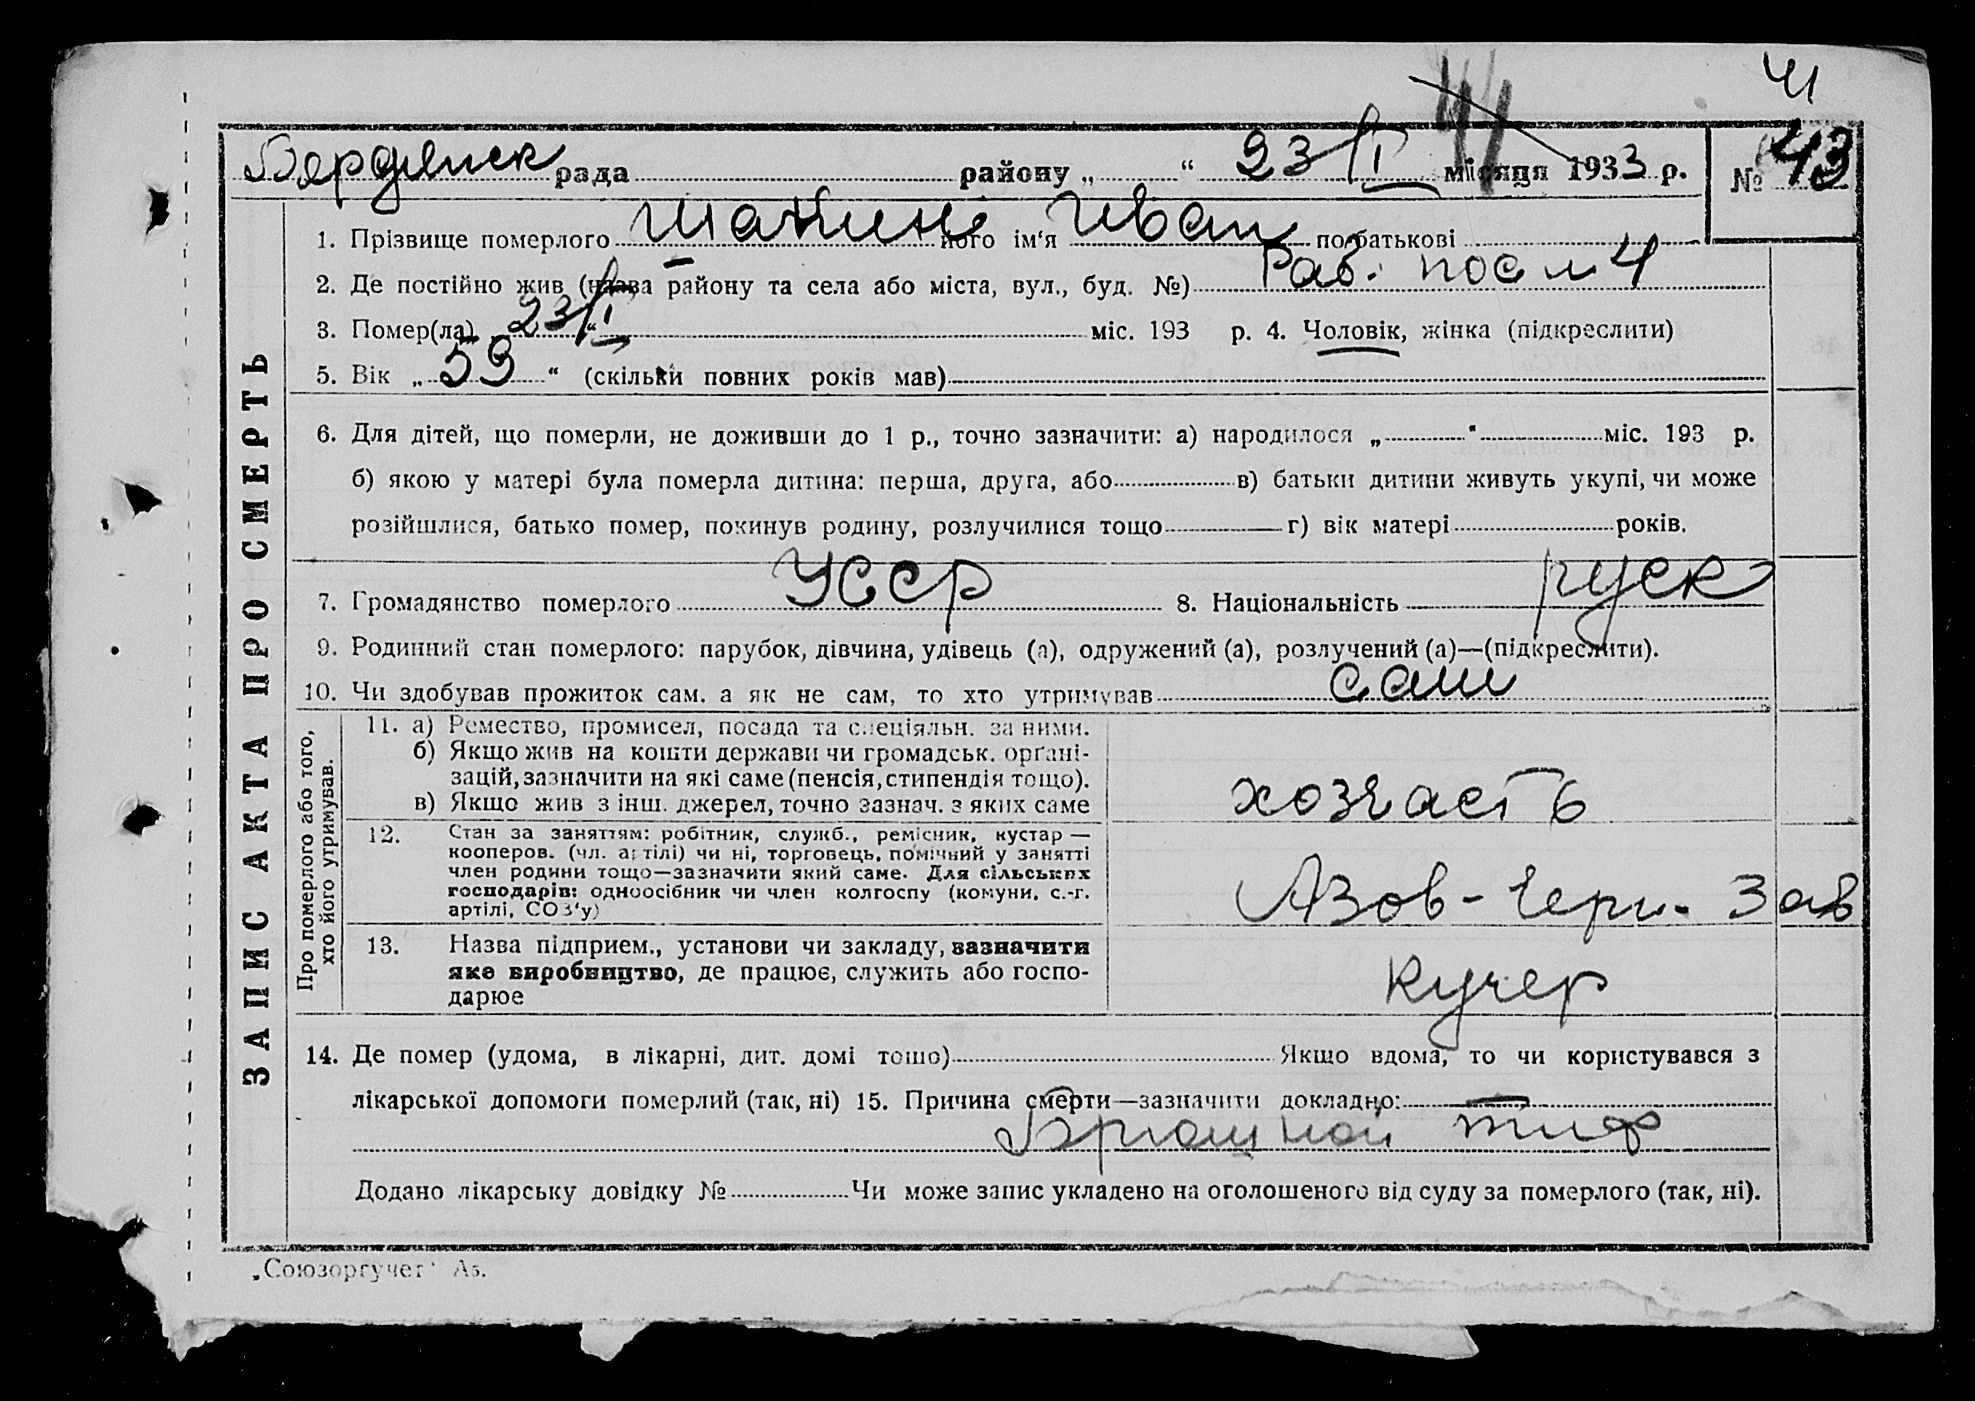 41
Бердянск рада району „ “ 23/I місяця 1933 р. № 43
1. Прізвище померлого його ім'я Иван по батькові
2. Де постійно жив (назва району та села або міста, вул., буд. №) Раб. пос 4
3. Помер(ла) „ 23/I “ міс. 193 р. 4. Чоловік, жінка (підкреслити)
5. Вік „ 59 “ (скільки повних років мав)
6. Для дітей, що померли, не доживши до 1 р., точно зазначити: а) народилося „ “ міс. 193 р.
б) якою у матері була померла дитина: перша, друга, або в) батьки дитини живуть укупі, чи може
розійшлися, батько помер, покинув родину, розлучилися тощо г) вік матері років.
7. Громадянство померлого УССР 8. Національність руск
9. Родинний стан померлого: парубок, дівчина, удівець (а), одружений (а), розлучений (а)—(підкреслити).
10. Чи здобував прожиток сам. а як не сам, то хто утримував сам
ЗАПИС АКТА ПРО СМЕРТЬ
Про померлого або того,
хто його утримував.
11. а) Ремество, промисел, посада та спеціяльн. за ними.
б) Якщо жив на кошти держави чи громадськ. орґані-
зацій, зазначити на які саме (пенсія, стипендія тощо).
в) Якщо жив з інш. джерел, точно зазнач. з яких саме
хозчасть
12. Стан за заняттям: робітник, служб., ремісник, кустар —
кооперов. (чл. артілі) чи ні, торговець, помічний у занятті
член родини тощо—зазначити який саме. Для сільських
господарів: одноосібник чи член колгоспу (комуни, с.-г.
артілі, СОЗ'у)
Азов-Черн. Зав
13. Назва підприєм., установи чи закладу, зазначити
яке виробництво, де працює, служить або госпо-
дарює
кучер
14. Де помер (удома, в лікарні, дит. домі тощо) Якщо вдома, то чи користувався з
лікарської допомоги померлий (так, ні) 15. Причина смерти—зазначити докладно:
Брюшной тиф
Додано лікарську довідку № Чи може запис укладено на оголошеного від суду за померлого (так, ні).
„Союзоргучет“ А5.